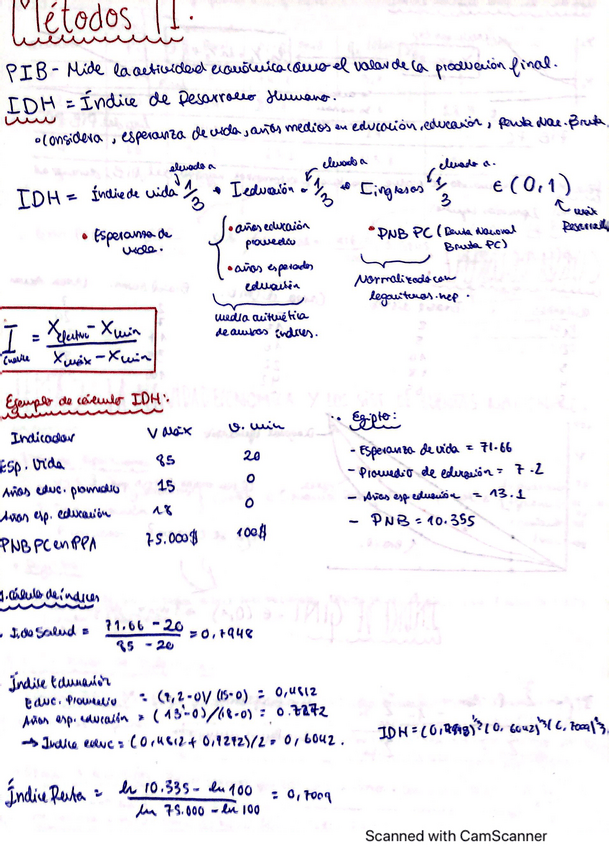 Métodos II.
PIB - Mide la actividad económica como el valor de la producción final.
IDH = Índice de Desarrollo Humano.
• Considera, esperanza de vida, años medios en educación, educación, Renta Nac. Bruta.
elevado a elevado a elevado a.
IDH = Índice de vida 1/3 • I educación • 1/3 • I ingresos 1/3 ∈ (0,1)
• Esperanza de vida.
• años educación promedio
• años esperados educación
media aritmética de ambos índices.
• PNB PC (Renta Nacional Bruta PC)
Normalizado con logaritmos nep.
I = X efectivo - X min / X máx - X min
Ejemplo de cálculo IDH:
Indicador V Máx v. min
Esp. Vida 85 20
Años educ. promedio 15 0
Años esp. educación 18 0
PNB PC en PPA 75.000$ 100$
Egipto:
- Esperanza de vida = 71.66
- Promedio de educación = 7.2
- Años esp educación = 13.1
- PNB = 10.355
1. Cálculo de índices
I. de Salud = 71.66 - 20 / 85 - 20 = 0,7948
Índice Educación
Educ. Promedio = (7,2-0)/(15-0) = 0,4812
Años esp. educación = (13'-0)/(18-0) = 0.7272
→ Indice educ = (0,4812 + 0,7272)/2 = 0,6042.
IDH = (0,7948)^1/3 (0,6042)^1/3 (0,7009)^1/3
Índice Renta = ln 10.335 - ln 100 / ln 75.000 - ln 100 = 0,7009
Scanned with CamScanner